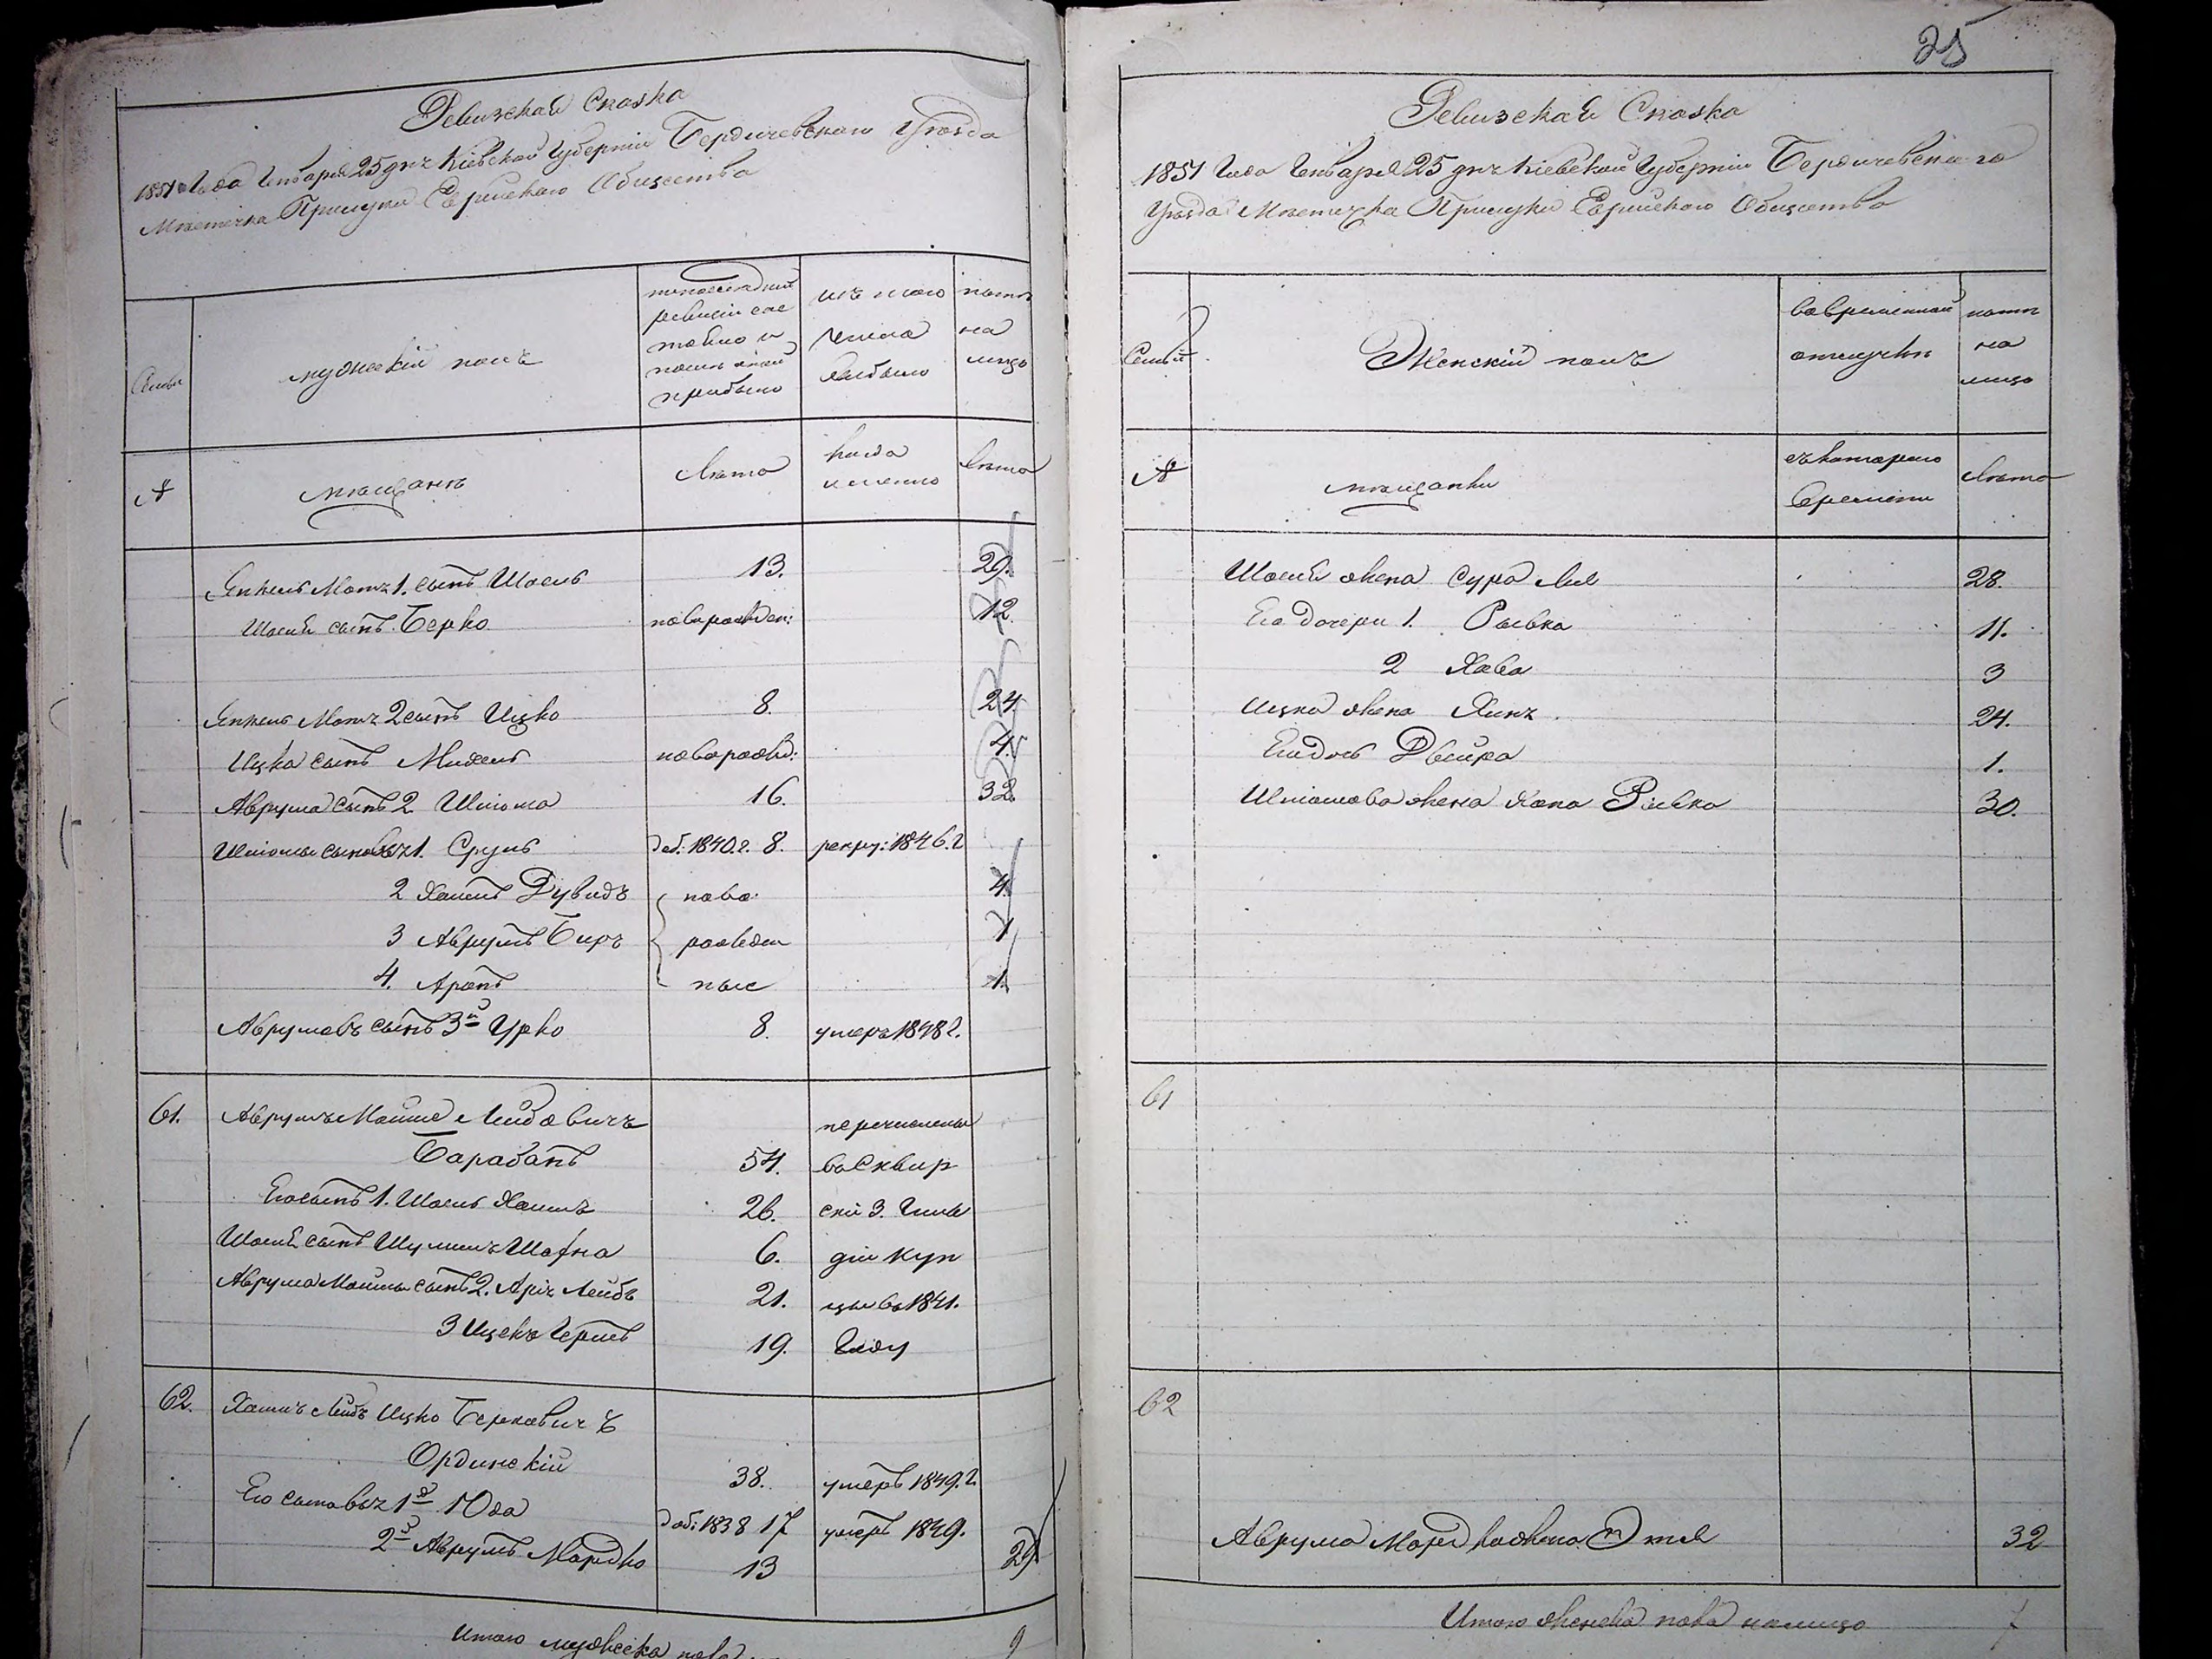 Ревизская Сказка
1851 года Генваря 25 дня Кіевской Губерніи Бердичевскаго Уѣзда
Мѣстечка Прилуки Еврейскаго Общества
Семьи
мужескій полъ
по последней
ревизіи сос
тояло и
послѣ оной
прибыло
изъ того
числа
выбыло
нынѣ
на
лицо
№
мѣщанъ
Лѣта
когда
именно
Лѣта
Янкель Мот 1. сынъ Шоель 13. 29.
Шоеля сынъ Берко новорожден: 12.
Янкель Мот 2 сынъ Ицко 8. 24.
Ицка сынъ Михель новорожд: 4.
Аврума сынъ 2 Шліома 16. 32.
Шліомы сыновья 1. Сруль доб. 1840. г. 8. рекру: 1846. г
2 Хаимъ Дувидъ ново 4.
3 Аврумъ Беръ рожден 1
4. Аронъ ные 1.
Аврумовъ сынъ 3й Урко 8. умеръ 1848 г.
61. Аврумъ Мошко Лейбовичъ перечислены
Барабанъ 54. во Сквир
Его сынъ 1. Шоель Хаимъ 26. скій 3. Гиль
Шоеля сынъ Шулимъ Шафна 6. дій куп
Аврума Мошки сынъ 2. Аріе Лейбъ 21. цы в 1841.
3 Ицекъ Гершъ 19. Году
62. Хаимъ Лейбъ Ицко Берковичъ
Ординскій 38. умеръ 1849. г.
Его сыновья 1й Юда доб: 1838 17 умеръ 1849.
2й Аврумъ Мордко 13 29
Итого мужеска пола 9
25
Ревизская Сказка
1851 Года Генваря 25 дня Кіевской Губерніи Бердичевскаго
Уѣзда Мѣстечка Прилуки Еврейскаго Общества
Семьи
Женскій полъ
во временной
отлучкѣ
нынѣ
на
лицо
№
мѣщанки
съ котораго
времени
Лѣта
Шоеля жена Сура Лея 28.
Его дочери 1. Рывка 11.
2 Хава 3
Ицка жена 24.
Его дочь Двейра 1.
Шліомова жена Хана Ривка 30.
61
62
Аврума Мордка жена Этя 32
Итого женска пола налицо 7